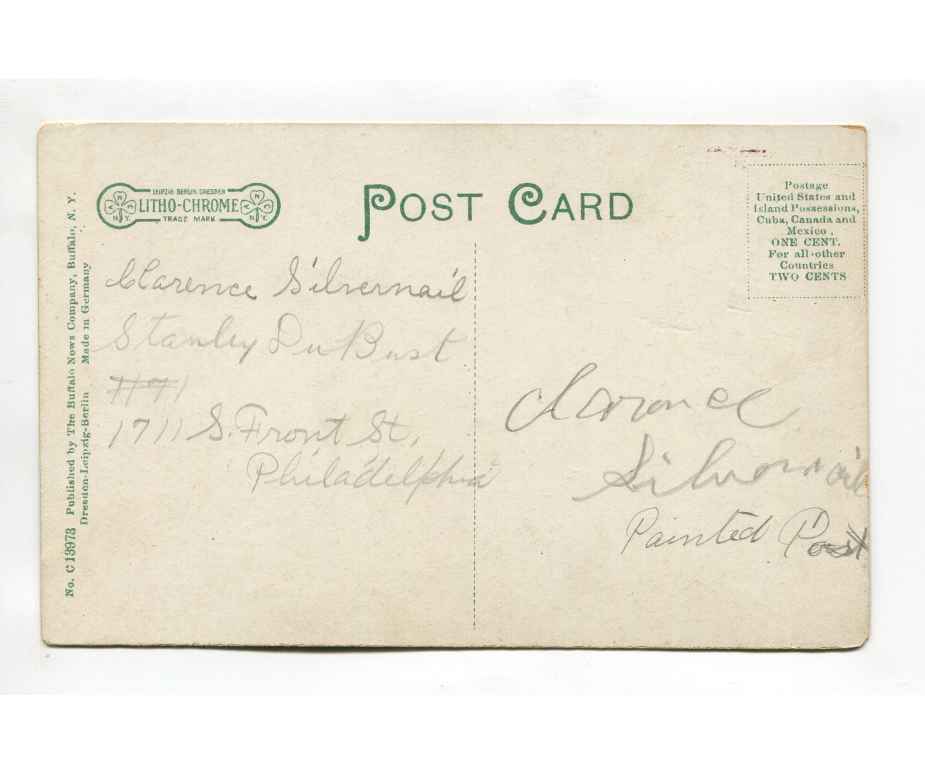 LEIPZIG BERLIN DRESDEN
LITHO-CHROME
TRADE MARK
POST CARD
Postage
United States and
Island Possessions,
Cuba, Canada and
Mexico.
ONE CENT.
For all other
Countries
TWO CENTS
No. C 13973 Published by The Buffalo News Company, Buffalo, N. Y.
Dresden-Leipzig-Berlin Made in Germany
Clarence Silvernail
Stanley DuBust
1711 S. Front St,
Philadelphia
Clarence
Silvernail
Painted Post